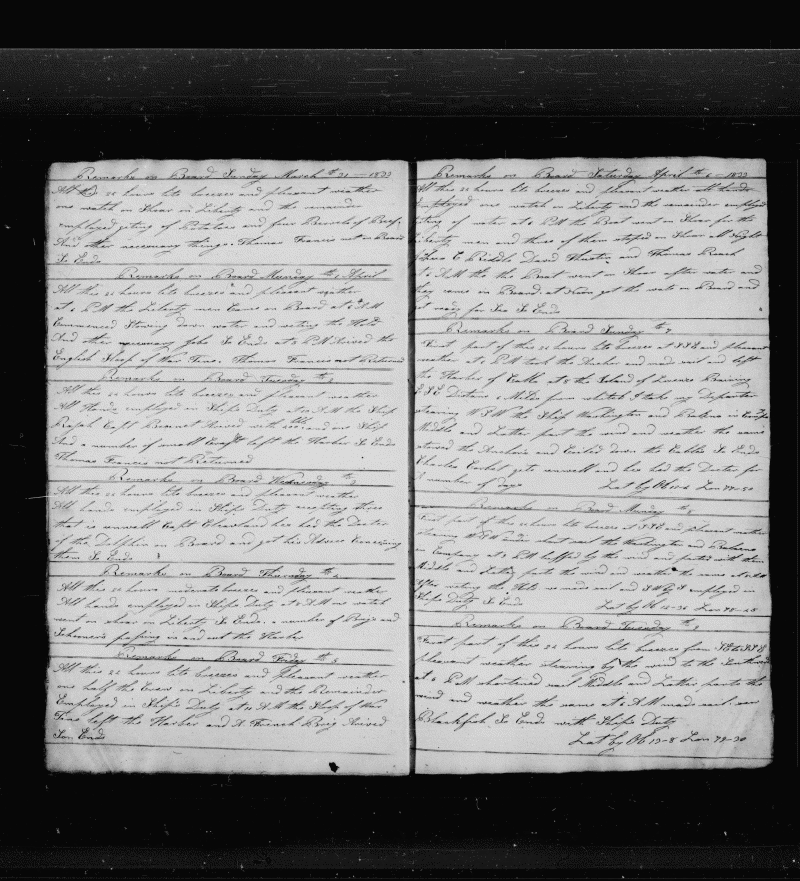 Remarks on Board Sunday March th 31 — 1833
All this 24 hours lite breezes and pleasant weather
one watch on Shoar on Liberty and the remainder
employed geting of Potatoes and four Barrels of Beef
And other necessary things. Thomas Frances not on Board
So Ends
Remarks on Board Munday th 1 April
All this 24 hours lite breezes and pleasant weather
at 6 PM the Liberty men Came on Board at 6 AM
Commenced Stowing down water and weting the Hold
And other necessary Jobs So Ends at 2 PM Arived the
English Sloop of War Tine. Thomas Frances not Returned
Remarks on Board Tuesday th 2
All this 24 hours lite breezes and pleasant weather
All Hands employed on Ships Duty at 10 AM the Ship
Ralph Capt Bennet Arived with
And a number of small Craft left the Harbor So Ends
Thomas Frances not Returned
Remarks on Board Wednesday th 3
All this 24 hours lite breezes and pleasant weather
All hands employed in Ships Duty excepting three
that is unwell Capt Cleaveland has had the Docter
of the Dolphin on Board and got his Advice Concerning
them So Ends
Remarks on Board Thursday th 4
All this 24 hours moderate breezes and pleasant weather
All hands employed in Ships Duty at 6 AM one watch
went on shoar on Liberty So Ends. a number of Brigs and
Schooners passing in and out the Harbor
Remarks on Board Friday th 5
All this 24 hours lite breezes and pleasant weather
one half the Crew on Liberty and the Remainder
Employed in Ships Duty at 10 AM the Sloop of War
Tine left the Harbor and A French Brig Arived
So Ends
Remarks on Board Saturday April th 6 — 1833
All this 24 hours lite breezes and pleasant weather all hands
employed one watch on Liberty and the remainder employed
geting of water at 6 PM the Boat went on Shoar for the
Liberty men and three of them stoped on Shoar All Night
E Riddle David and Thomas Roach
6 AM the Boat went on Shoar after water and
they came on Board at Noon got the water on Board and
got ready for Sea So Ends
Remarks on Board Sunday th 7
First part of this 24 hours lite breezes at SSE and pleasant
weather at 2 PM took the Anchor and made sail and left
the Harbor of Callao at 8 the Island of Lorenzo Bearing
ESE Distance 6 Miles from which I take my Departer
stearing WNW the Ship Washington and in Company
Middle and Latter part the wind and weather the same
stowed the Anchors and Coiled down the Cables So Ends
Charles gets unwell and has had the Docter for
A number of days Lat by Ob Lon 77-50
Remarks on Board Munday th 8
First part of this 24 hours lite breezes at SSE and pleasant weather
stearing WNW under short sail the Washington and
in Company at 2 PM luffed by the wind and parted with them
Middle and Latter parts the wind and weather the same
After weting the Hold we made sail and employed in
Ships Duty So Ends Lat by Ob 12-36 Lon 78-48
Remarks on Board Tuesday th 9
First part of this 24 hours lite breezes from SE to SSE
pleasant weather stearing by the wind to the Southward
at 6 PM shortened sail Middle and Latter parts the
wind and weather the same at 6 AM made sail saw
Blackfish So Ends with Ships Duty
Lat by Ob 13-8 Lon 79-30